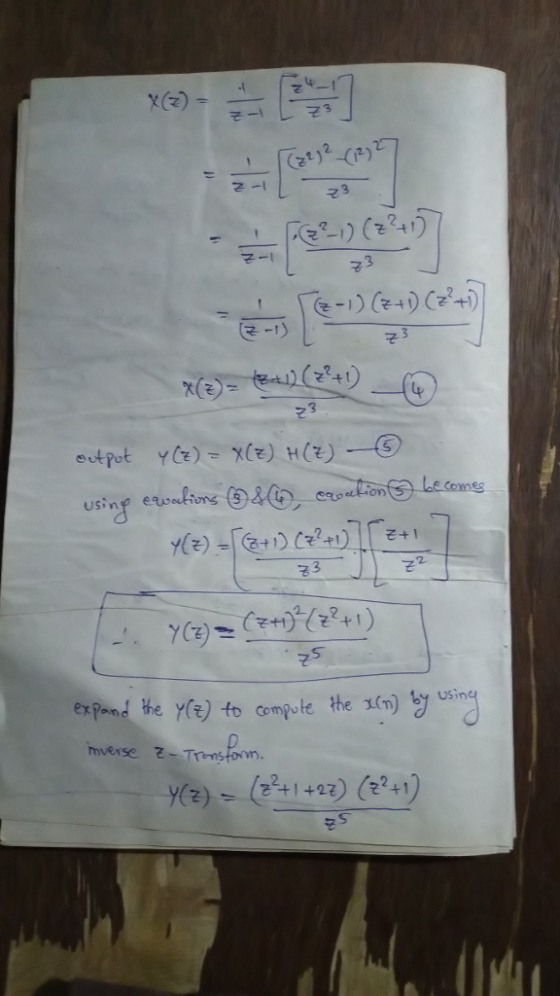 X(z) = 1/(z-1) [(z⁴-1)/z³]
= 1/(z-1) [((z²)² - (1²)²)/z³]
= 1/(z-1) [(z²-1) (z²+1)/z³]
= 1/(z-1) [(z-1) (z+1) (z²+1)/z³]
X(z) = (z+1) (z²+1)/z³ — ④
output Y(z) = X(z) H(z) — ⑤
using equations ③ & ④, equation ⑤ becomes
Y(z) = [(z+1) (z²+1)/z³] [z+1/z²]
∴ Y(z) = (z+1)² (z²+1)/z⁵
expand the Y(z) to compute the x(n) by using
inverse z-Transform.
Y(z) = (z²+1+2z) (z²+1)/z⁵